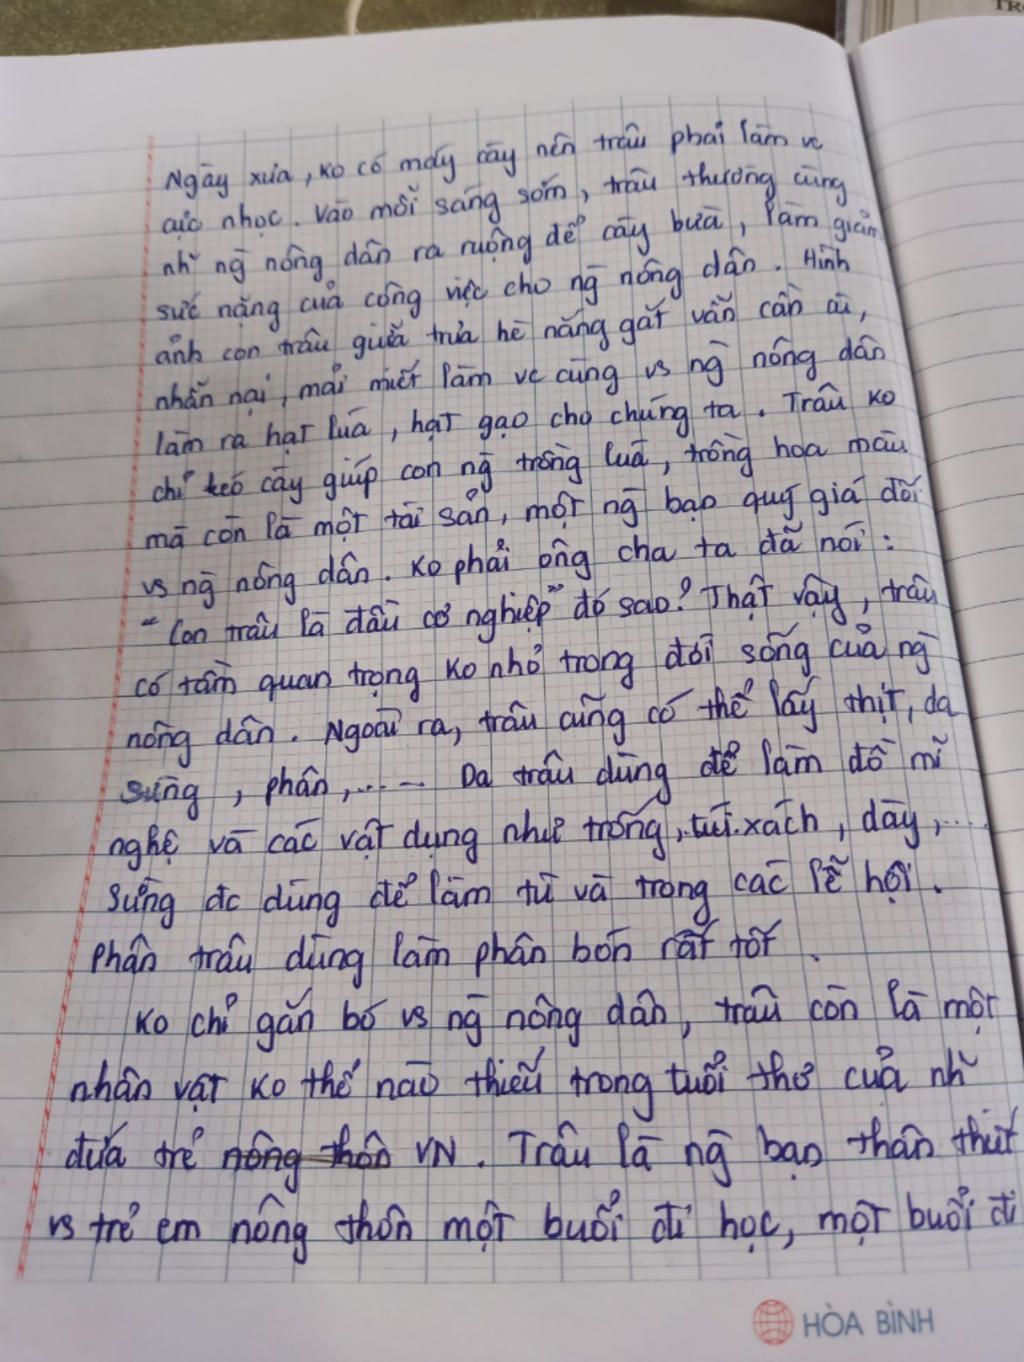 TR
Ngày xưa, ko có máy cày nên trâu phải làm vc
cực nhọc. Vào mỗi sáng sớm, trâu thường cùng
nh~ ng` nông dân ra ruộng để cày bừa, làm giảm
sức nặng của công việc cho ng` nông dân. Hình
ảnh con trâu giữa trưa hè nắng gắt vẫn cần cù,
nhẫn nại, mải miết làm vc cùng vs ng` nông dân
làm ra hạt lúa, hạt gạo cho chúng ta. Trâu ko
chỉ kéo cày giúp con ng` trồng lúa, trồng hoa màu
mà còn là một tài sản, một ng` bạn quý giá đối
vs ng` nông dân. Ko phải ông cha ta đã nói:
"Con trâu là đầu cơ nghiệp" đó sao? Thật vậy, trâu
có tầm quan trọng ko nhỏ trong đời sống của ng`
nông dân. Ngoài ra, trâu cũng có thể lấy thịt, da
sừng, phân,... - Da trâu dùng để làm đồ mĩ
nghệ và các vật dụng như trống, túi xách, dày,...
Sừng đc dùng để làm tù và trong các lễ hội.
Phân trâu dùng làm phân bón rất tốt.
Ko chỉ gắn bó vs ng` nông dân, trâu còn là một
nhân vật ko thể nào thiếu trong tuổi thơ của nh~
đứa trẻ nông thôn VN. Trâu là ng` bạn thân thiết
vs trẻ em nông thôn một buổi đi học, một buổi đi
HÒA BÌNH